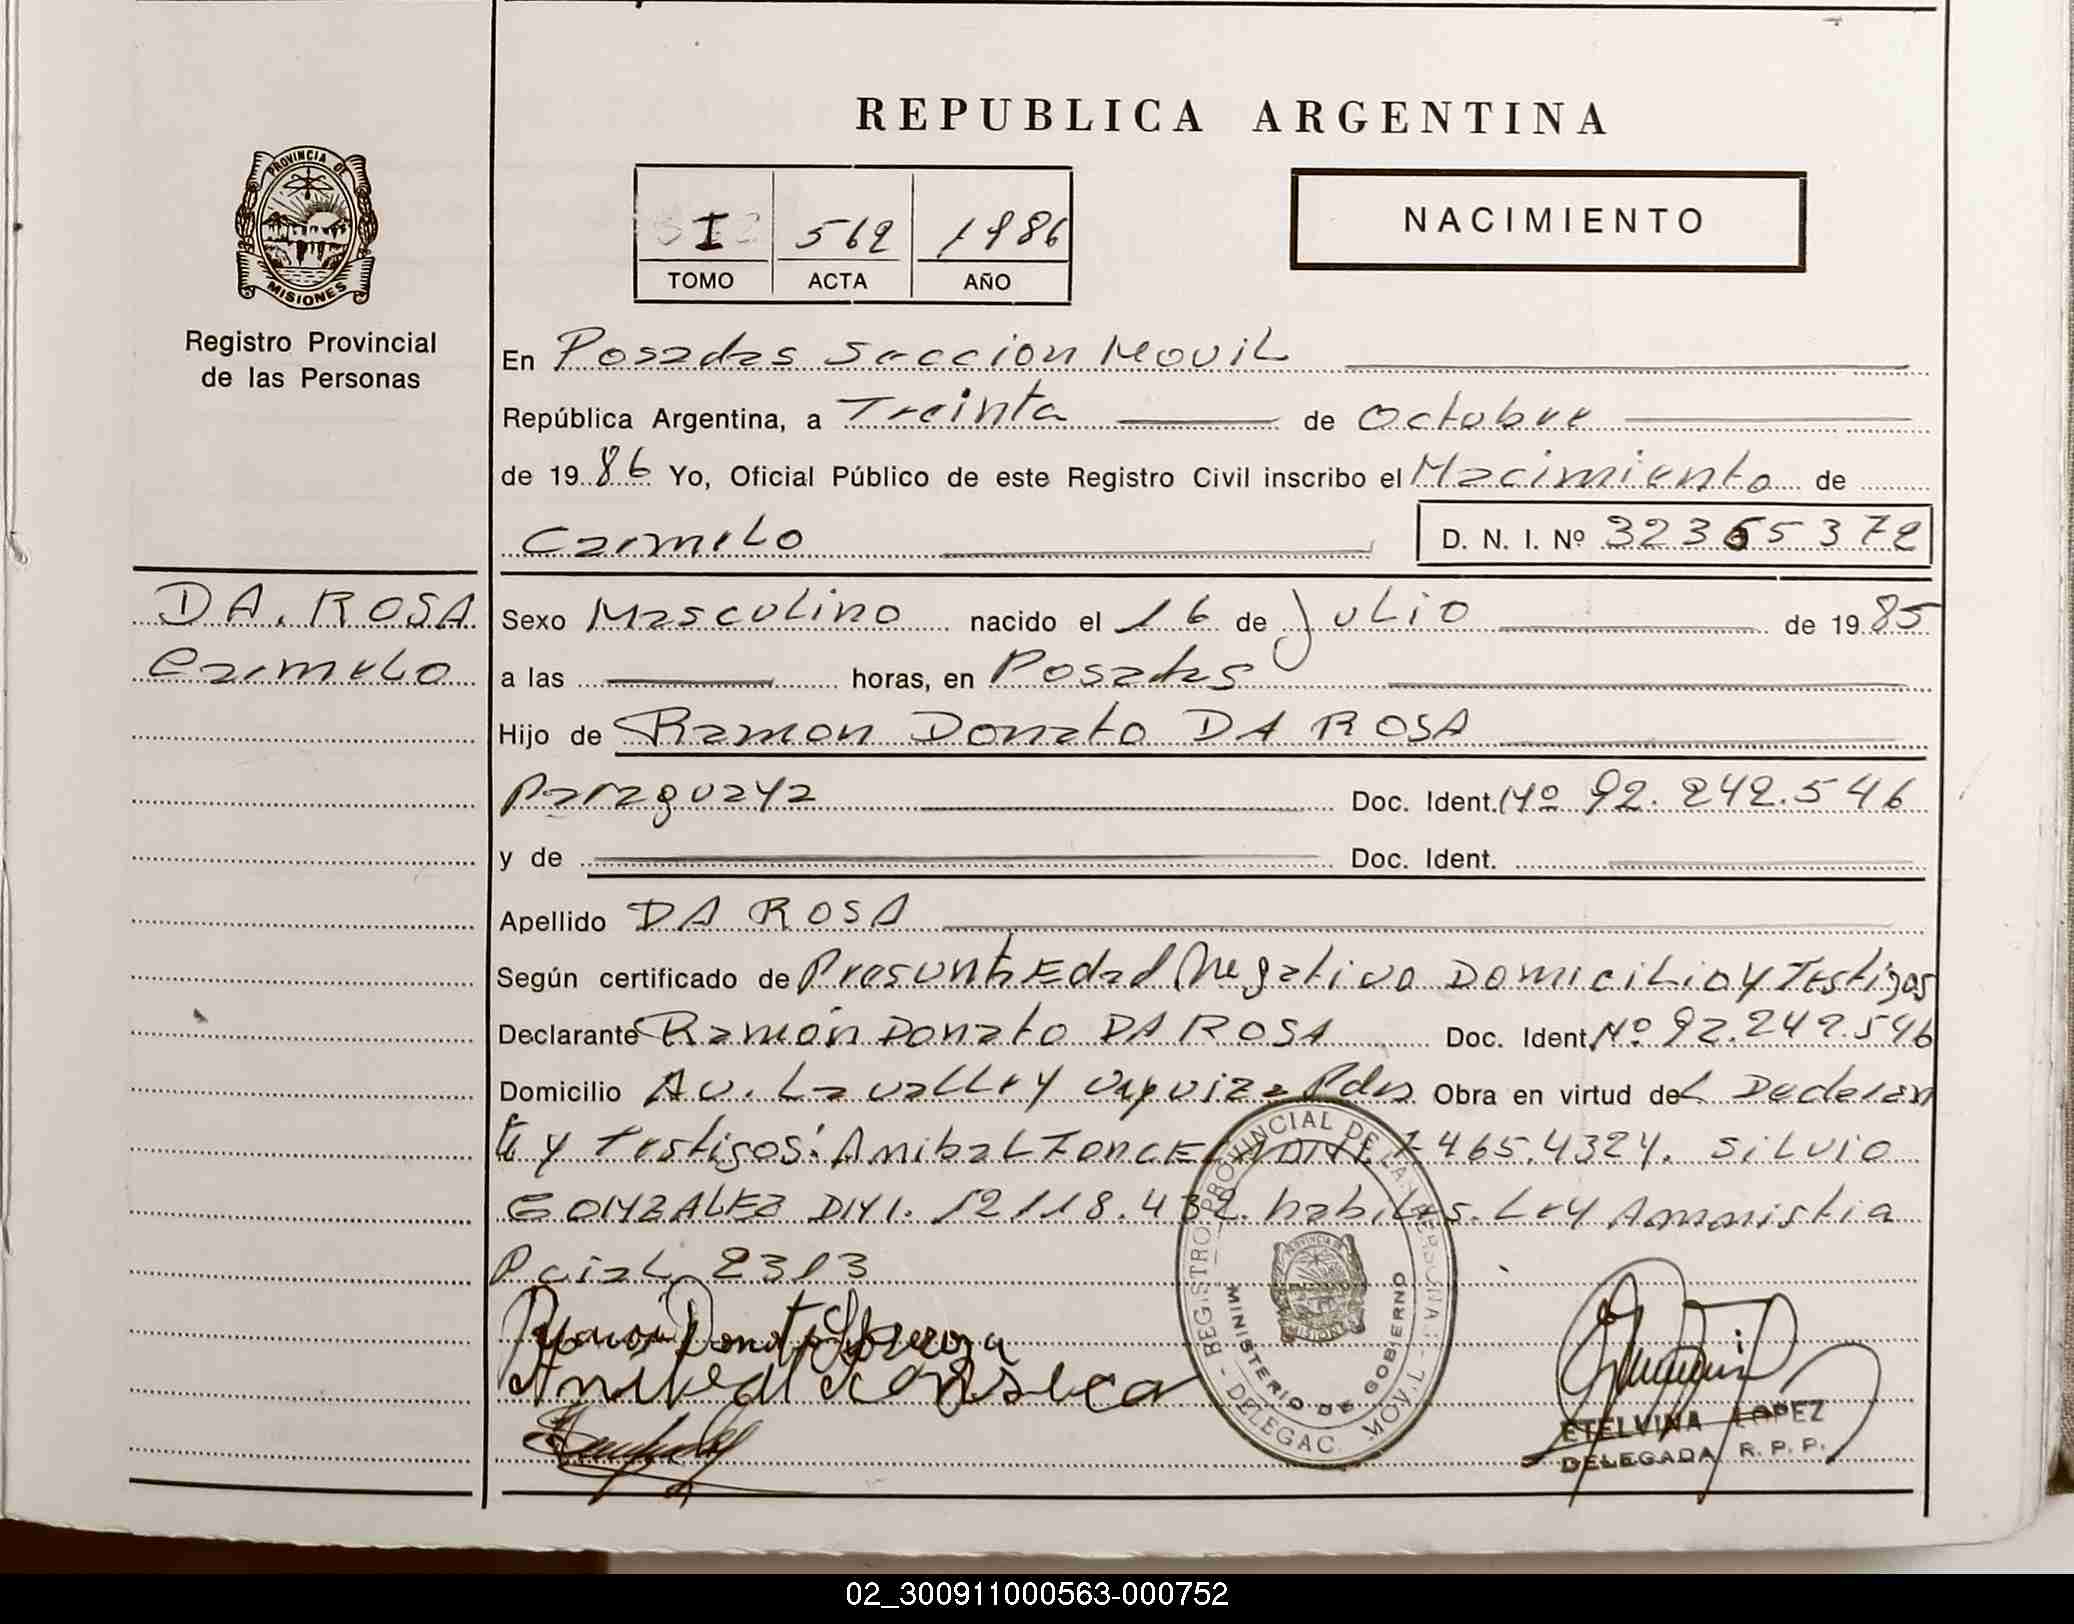 REPUBLICA ARGENTINA
PROVINCIA DE
MISIONES
Registro Provincial
de las Personas
I 562 1986
TOMO ACTA AÑO
NACIMIENTO
En Posadas Seccion Movil
República Argentina, a Treinta de Octubre
de 1986 Yo, Oficial Público de este Registro Civil inscribo el Nacimiento de
Carmelo D. N. I. Nº 32365372
DA. ROSA
Carmelo
Sexo Masculino nacido el 16 de Julio de 1985
a las horas, en Posadas
Hijo de Ramon Donato DA ROSA
Paraguaya Doc. Ident. Nº 92.242.546
y de Doc. Ident.
Apellido DA ROSA
Según certificado de Presunta Edad Negativo Domicilio y Testigos
Declarante Ramón Donato DA ROSA Doc. Ident. Nº 92.242.546
Domicilio Av. Lavalle y Urquiza Pdas Obra en virtud del Declaran
te y Testigos: Anibal Silvio
GONZALEZ DNI. 12118.432. habiles. Ley Amnistia
Pcial 2313
Anibal Fonseca
REGISTRO PROVINCIAL DE LAS PERSONAS
MINISTERIO DE GOBIERNO
DELEGAC. MOVIL
PROVINCIA DE
MISIONES
ETELVINA LOPEZ
DELEGADA R. P. P.
02_300911000563-000752